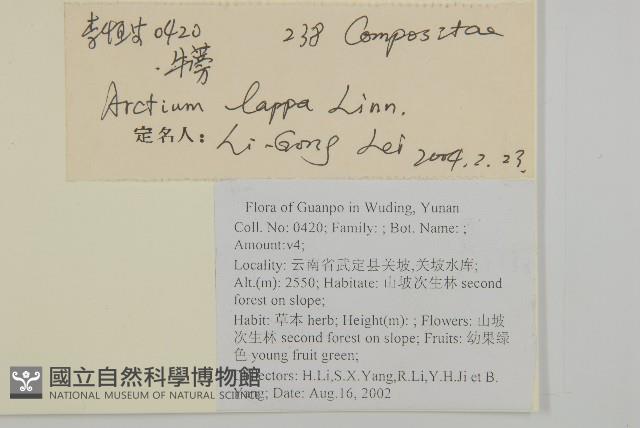 李恒等 0420 238 Compositae
牛蒡
Arctium lappa Linn.
定名人: Li-Gong Lei 2004.2.23.
Flora of Guanpo in Wuding, Yunan
Coll. No: 0420; Family: ; Bot. Name: ;
Amount:v4;
Locality: 云南省武定县关坡,关坡水库;
Alt.(m): 2550; Habitate: 山坡次生林 second
forest on slope;
Habit: 草本 herb; Height(m): ; Flowers: 山坡
次生林 second forest on slope; Fruits: 幼果绿
色 young fruit green;
H.Li,S.X.Yang,R.Li,Y.H.Ji et B.
Date: Aug.16, 2002
國立自然科學博物館
NATIONAL MUSEUM OF NATURAL SCIENCE